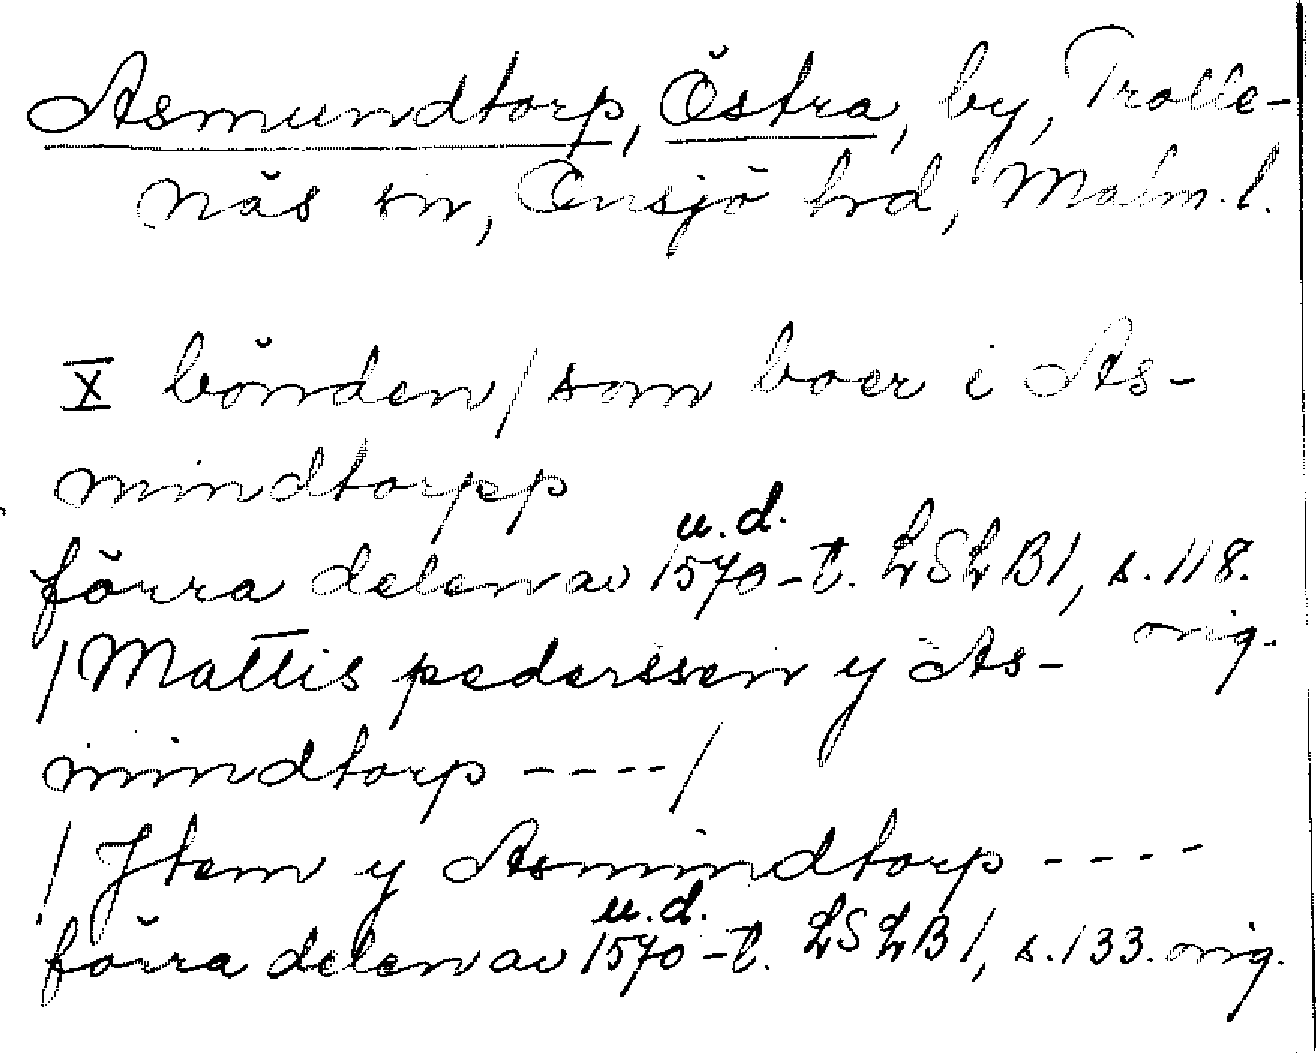 Asmundtorp, Östra, by, Trolle-
näs sn, Onsjö hrd, Malm. l.
X bönden / som boer i As-
mindtorpp
u.d.
förra delen av 1570-t. LSLB1, s. 118.
orig.
/ Mattis pederssen y As-
mindtorp ---- /
/ Jtem y Asmindtorp ----
u.d.
förra delen av 1570-t. LSLB1, s. 133. orig.